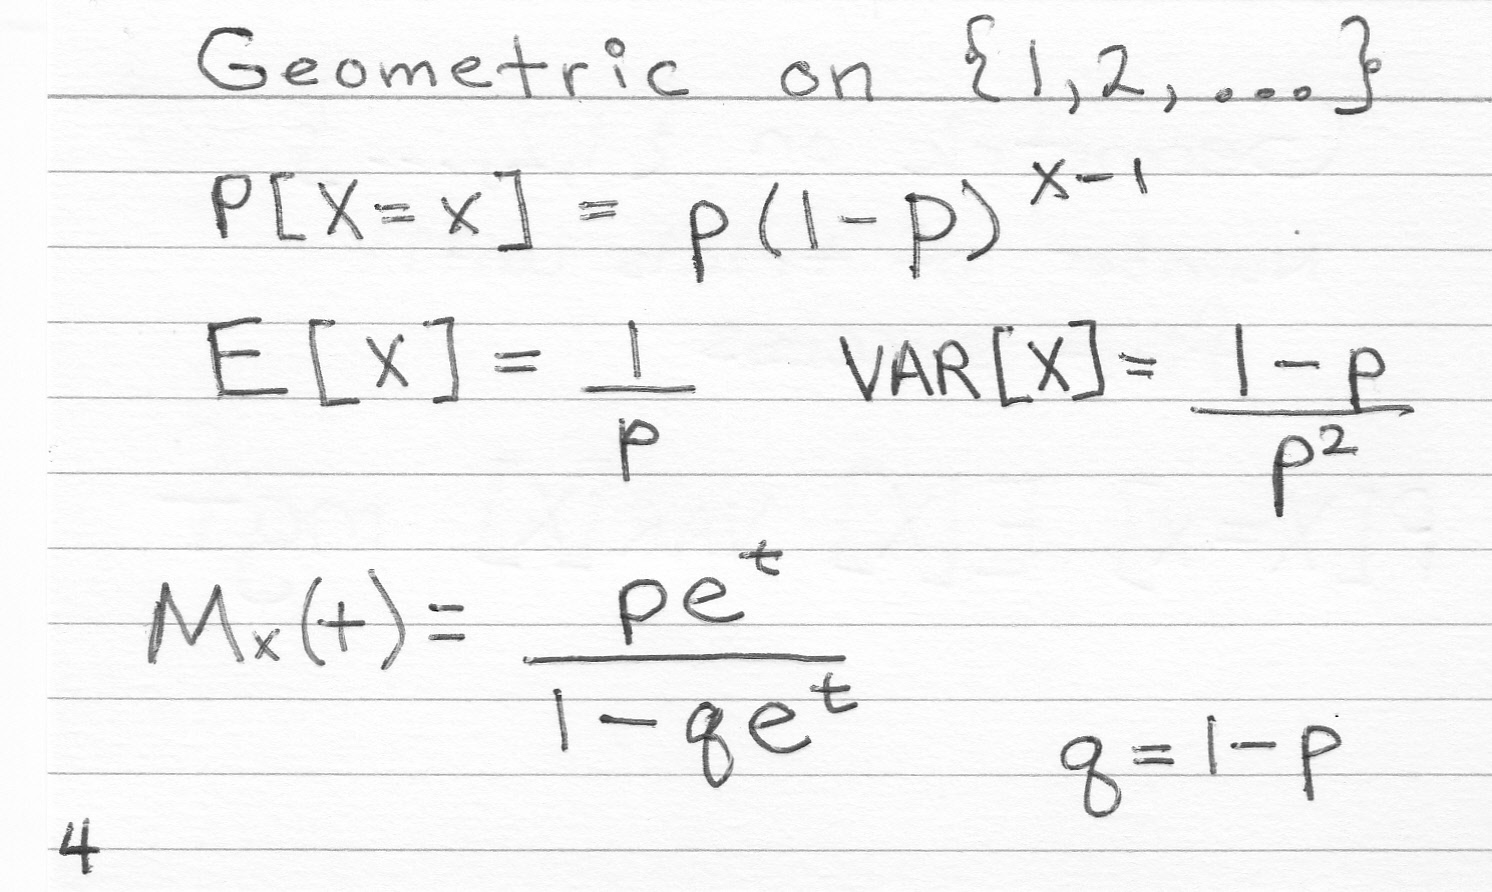 Geometric on {1,2,...}
P[X=x] = p(1-p)^{x-1}
E[X] = \frac{1}{p} VAR[X] = \frac{1-p}{p^2}
M_x(t) = \frac{pe^t}{1-qe^t}
q=1-p
4